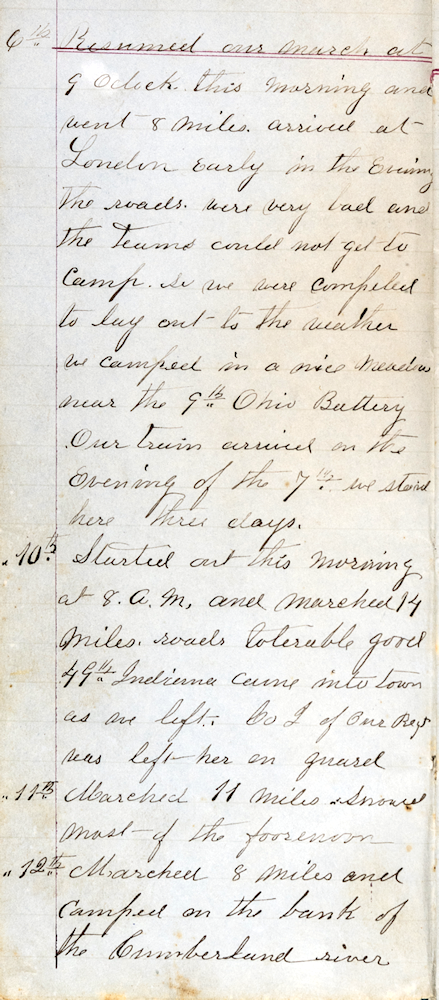 6th Resumed our march at
9 Oclock. this morning and
went 8 miles. arrived at
London Early in the Evening
the roads. were very bad and
the teams could not get to
Camp. so we were compeled
to lay out to the weather
we camped in a nice meadow
near the 9th Ohio Battery
Our train arrived on the
Evening of the 7th. we staid
here three days.
" 10th. Started out this morning
at 8. A. M, and marched 14
miles. roads tolerable good
49th Indiana came into town
as we left. Co I of Our Regt
was left her on guard
" 11th. Marched 11 miles. Snowed
most of the foorenoon
" 12th. Marched 8 miles and
Camped on the bank of
the Cumberland river